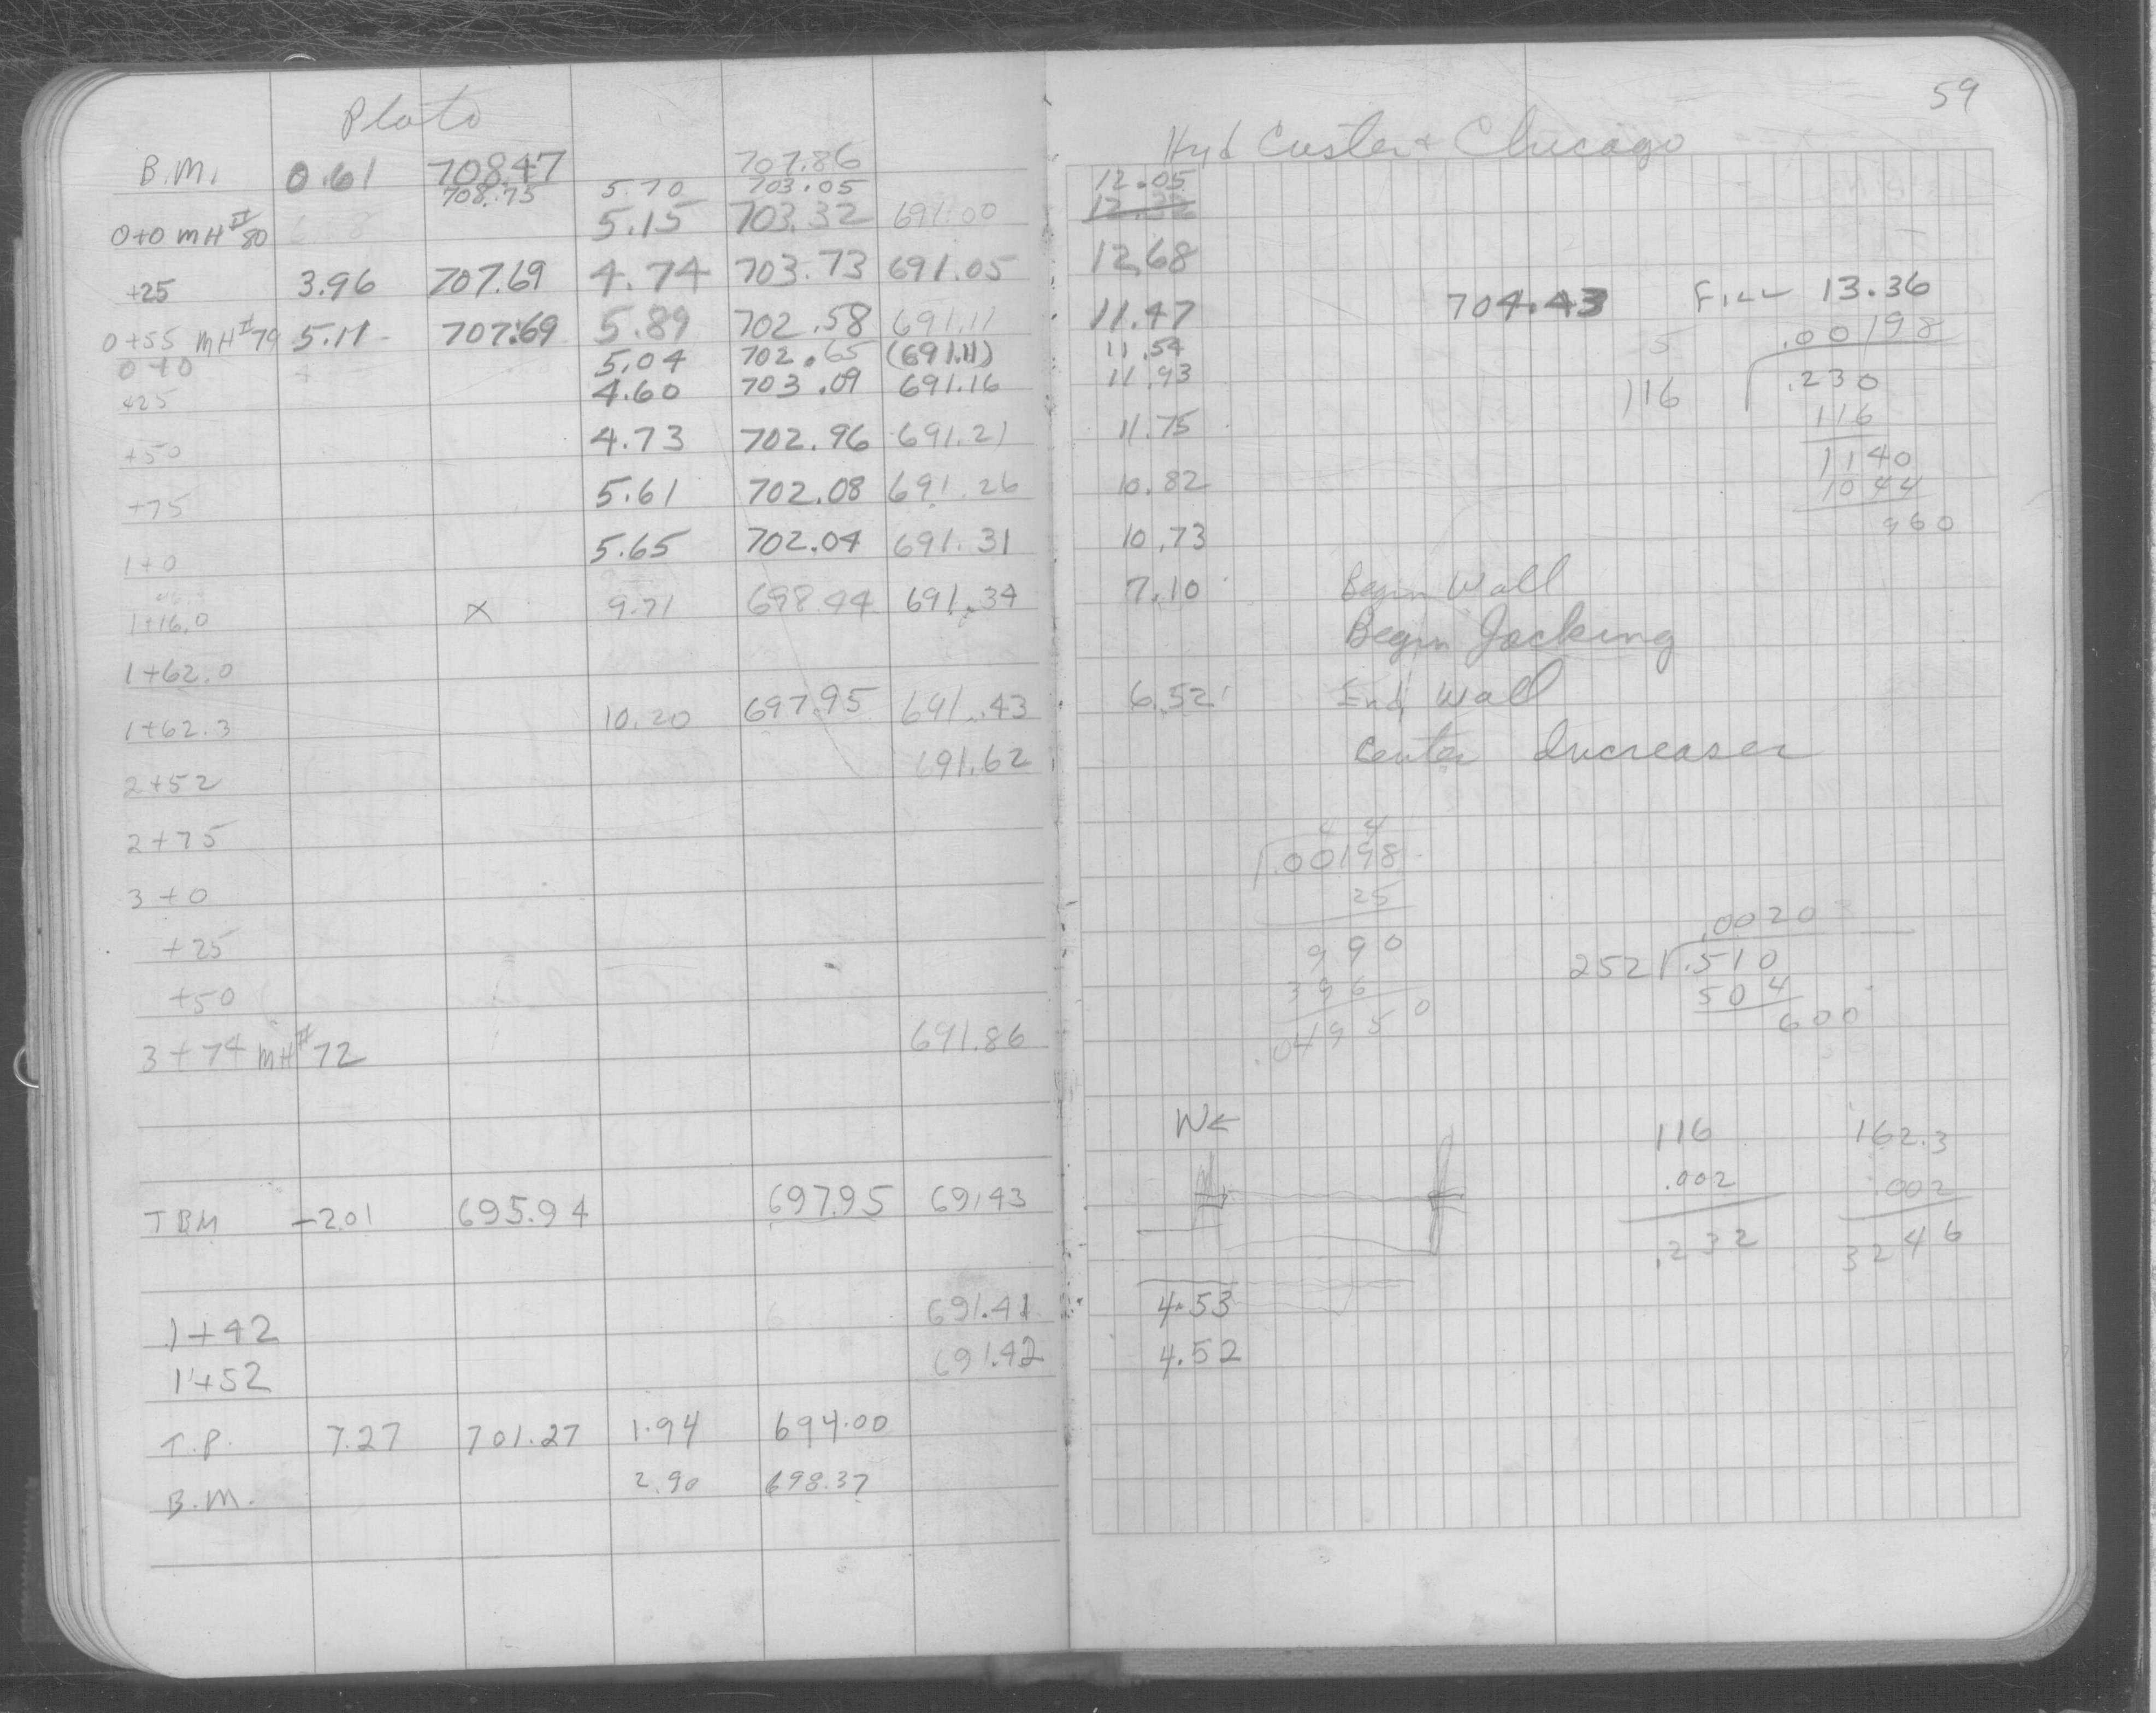 59
Plato
Hyd Custer + Chicago
B.M. 0.61 708.47 707.86
708.75 5.70 703.05 12.05
0+0 MH #80 5.15 703.32 691.00 12.32
+25 3.96 707.69 4.74 703.73 691.05 12.68
0+55 MH #79 5.11 707.69 5.89 702.58 691.11 11.47
0+0 5.04 702.65 (691.11) 11.54
+25 4.60 703.09 691.16 11.93
+50 4.73 702.96 691.21 11.75
+75 5.61 702.08 691.26 10.82
1+0 5.65 702.04 691.31 10.73
1+16.0 X 9.71 698.44 691.34 7.10 Begin Wall
Begin Jacking
1+62.0
1+62.3 10.20 697.95 691.43 6.52 End Wall
2+52 691.62 Center Increaser
2+75
3+0
+25
+50
3+74 MH #72 691.86
TBM -2.01 695.94 697.95 691.43
1+42 691.41 4.53
1+52 691.42 4.52
T.P. 7.27 701.27 1.94 694.00
B.M. 2.90 698.37
704.43 Fill 13.36
5 .00198
116 .230
116
1140
1044
960
4 4
.00198
25
990
396
.04950
.0020
252 .510
504
600
W←
116
.002
.232
162.3
.002
3246